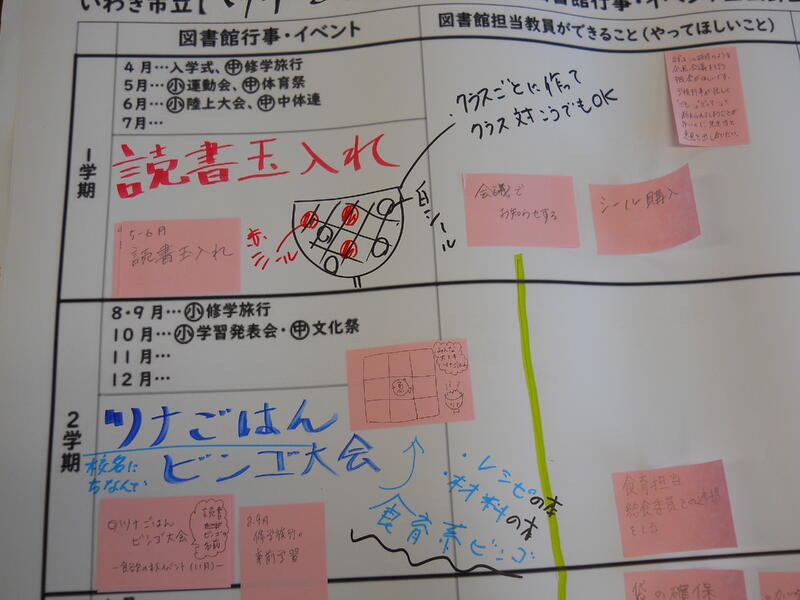 いわき市立【
図書館行事・イベント
図書館担当教員ができること(やってほしいこと)
1学期
4月…入学式、㊥修学旅行
5月…㊋運動会、㊥体育祭
6月…㊋陸上大会、㊥中体連
7月…
読書玉入れ
5-6月
読書玉入れ
赤シール
白シール
クラスごとに作って
クラス対こうでもOK
会議で
お知らせする
シール購入
2学期
8・9月…㊋修学旅行
10月…㊋学習発表会・㊥文化祭
11月…
12月…
ツナごはん
校名に
ちなんで
ビンゴ大会
・レシピの本
・材料の本
食育系ビンゴ
ツナごはん
ビンゴ大会
8.9月
修学旅行の
事前学習
食育担当
給食委員との連携
をとる
袋の確保